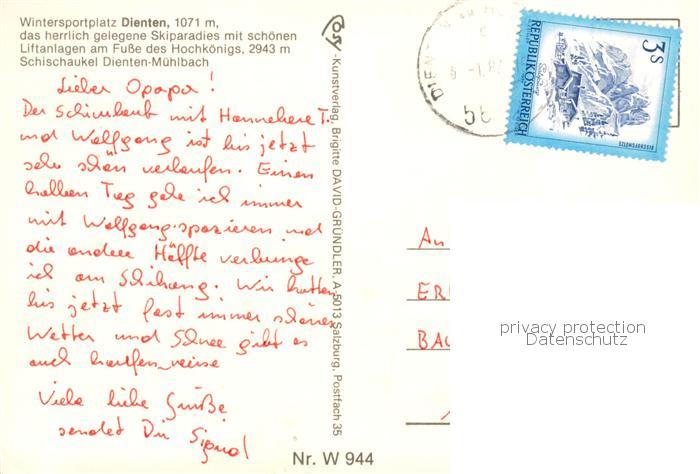 Wintersportplatz Dienten, 1071 m,
das herrlich gelegene Skiparadies mit schönen
Liftanlagen am Fuße des Hochkönigs, 2943 m
Schischaukel Dienten-Mühlbach
Lieber Opapa!
Der Schiurlaub mit Hannelore T.
und Wolfgang ist bis jetzt
sehr schön verlaufen. Einen
halben Tag gehe ich immer
mit Wolfgang spazieren und
die andere Hälfte verbringe
ich am Schihang. Wir hatten
bis jetzt fast immer schönes
Wetter und Schnee gibt es
auch haufenweise
Viele liebe Grüße
sendet Dir
Cosy-Kunstverlag, Brigitte DAVID-GRÜNDLER, A-5013 Salzburg, Postfach 35
Nr. W 944
DIENT
3S
REPUBLIK ÖSTERREICH
BISCHOFSMÜTZE
An
ER
BA
privacy protection
Datenschutz